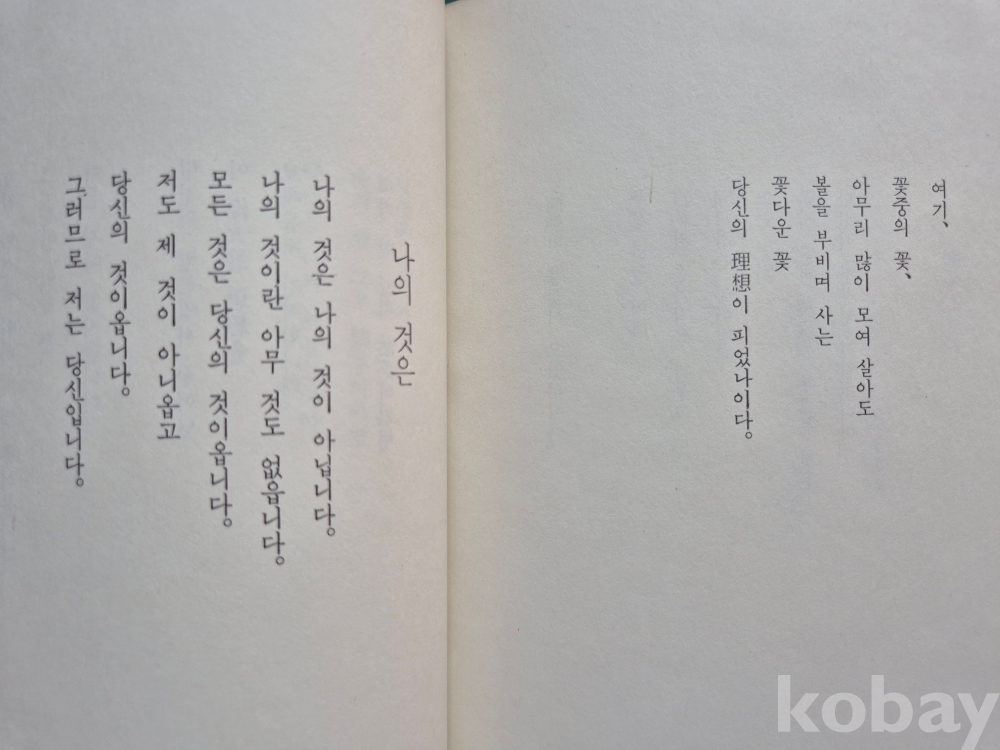 여기、
꽃중의 꽃、
아무리 많이 모여 살아도
볼을 부비며 사는
꽃다운 꽃
당신의 理想이 피었나이다。
나의 것은
나의 것은 나의 것이 아닙니다。
나의 것이란 아무 것도 없읍니다。
모든 것은 당신의 것이옵니다。
저도 제 것이 아니옵고
당신의 것이옵니다。
그러므로 저는 당신입니다。
kobay